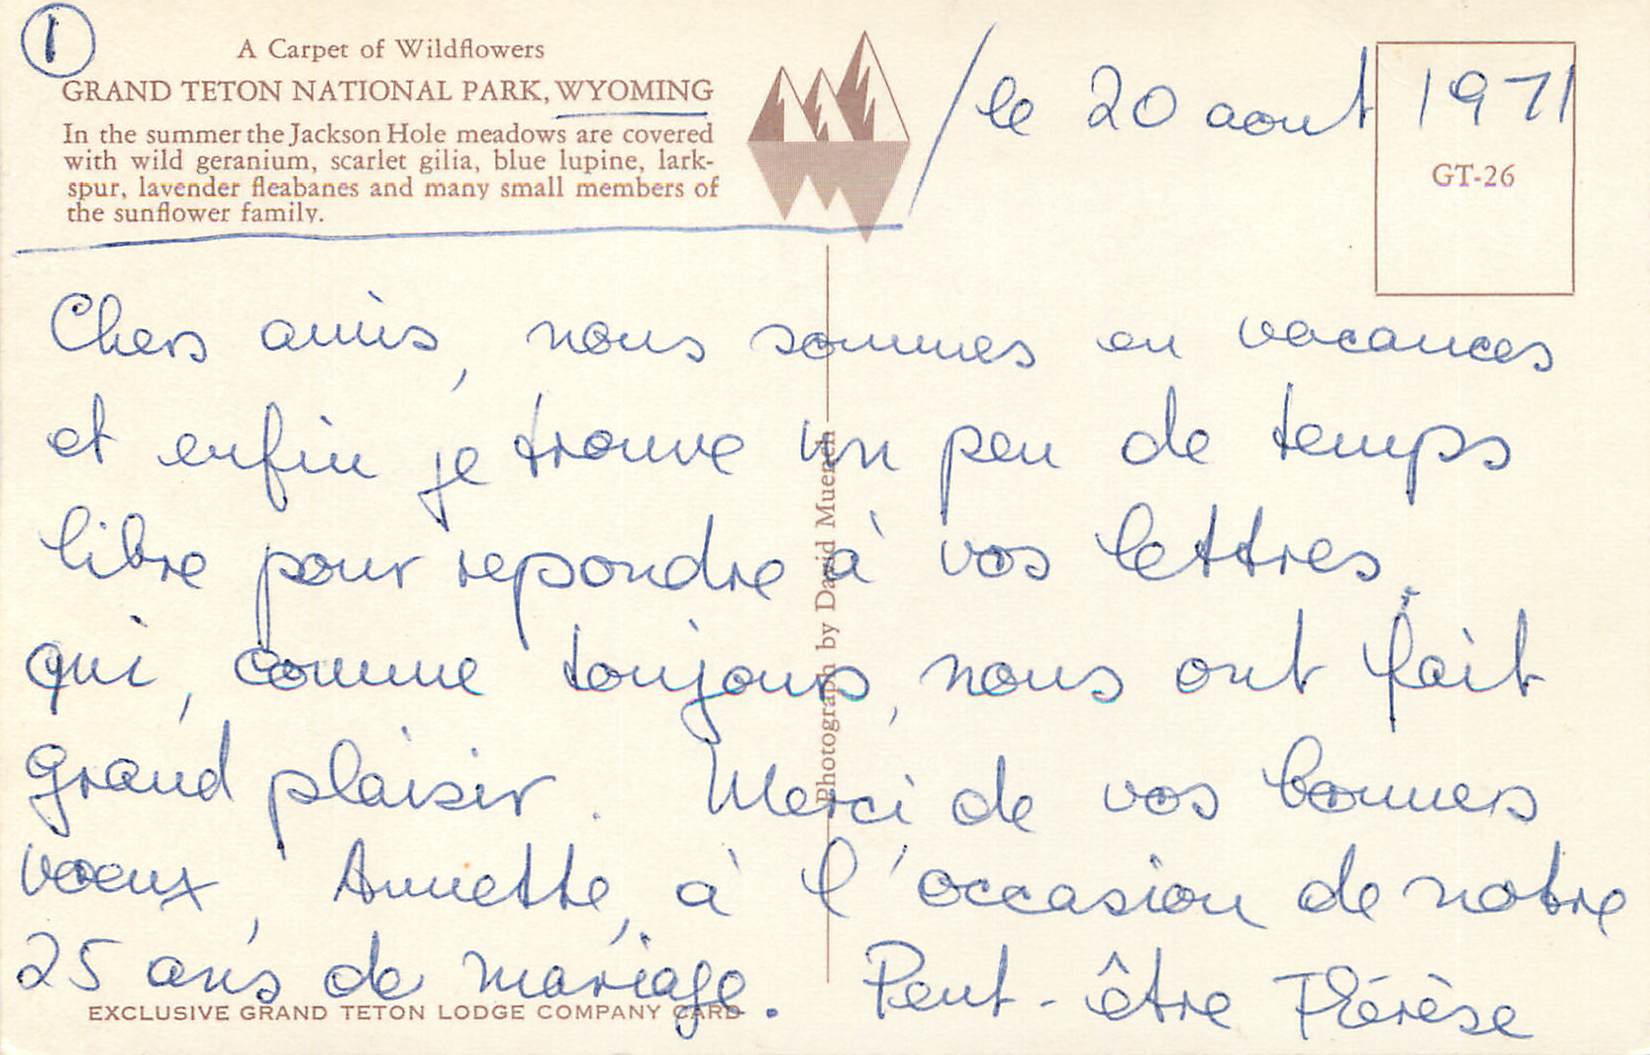 1
A Carpet of Wildflowers
GRAND TETON NATIONAL PARK, WYOMING
In the summer the Jackson Hole meadows are covered
with wild geranium, scarlet gilia, blue lupine, lark-
spur, lavender fleabanes and many small members of
the sunflower family.
le 20 aout 1971
GT-26
Chers amis, nous sommes en vacances
et enfin je trouve un peu de temps
libre pour repondre à vos lettres,
qui, comme toujours, nous ont fait
grand plaisir. Merci de vos bonnes
voeux, Annette, à l'occasion de notre
25 ans de mariage. Peut-être Thérèse
Photograph by David Muench
EXCLUSIVE GRAND TETON LODGE COMPANY CARD